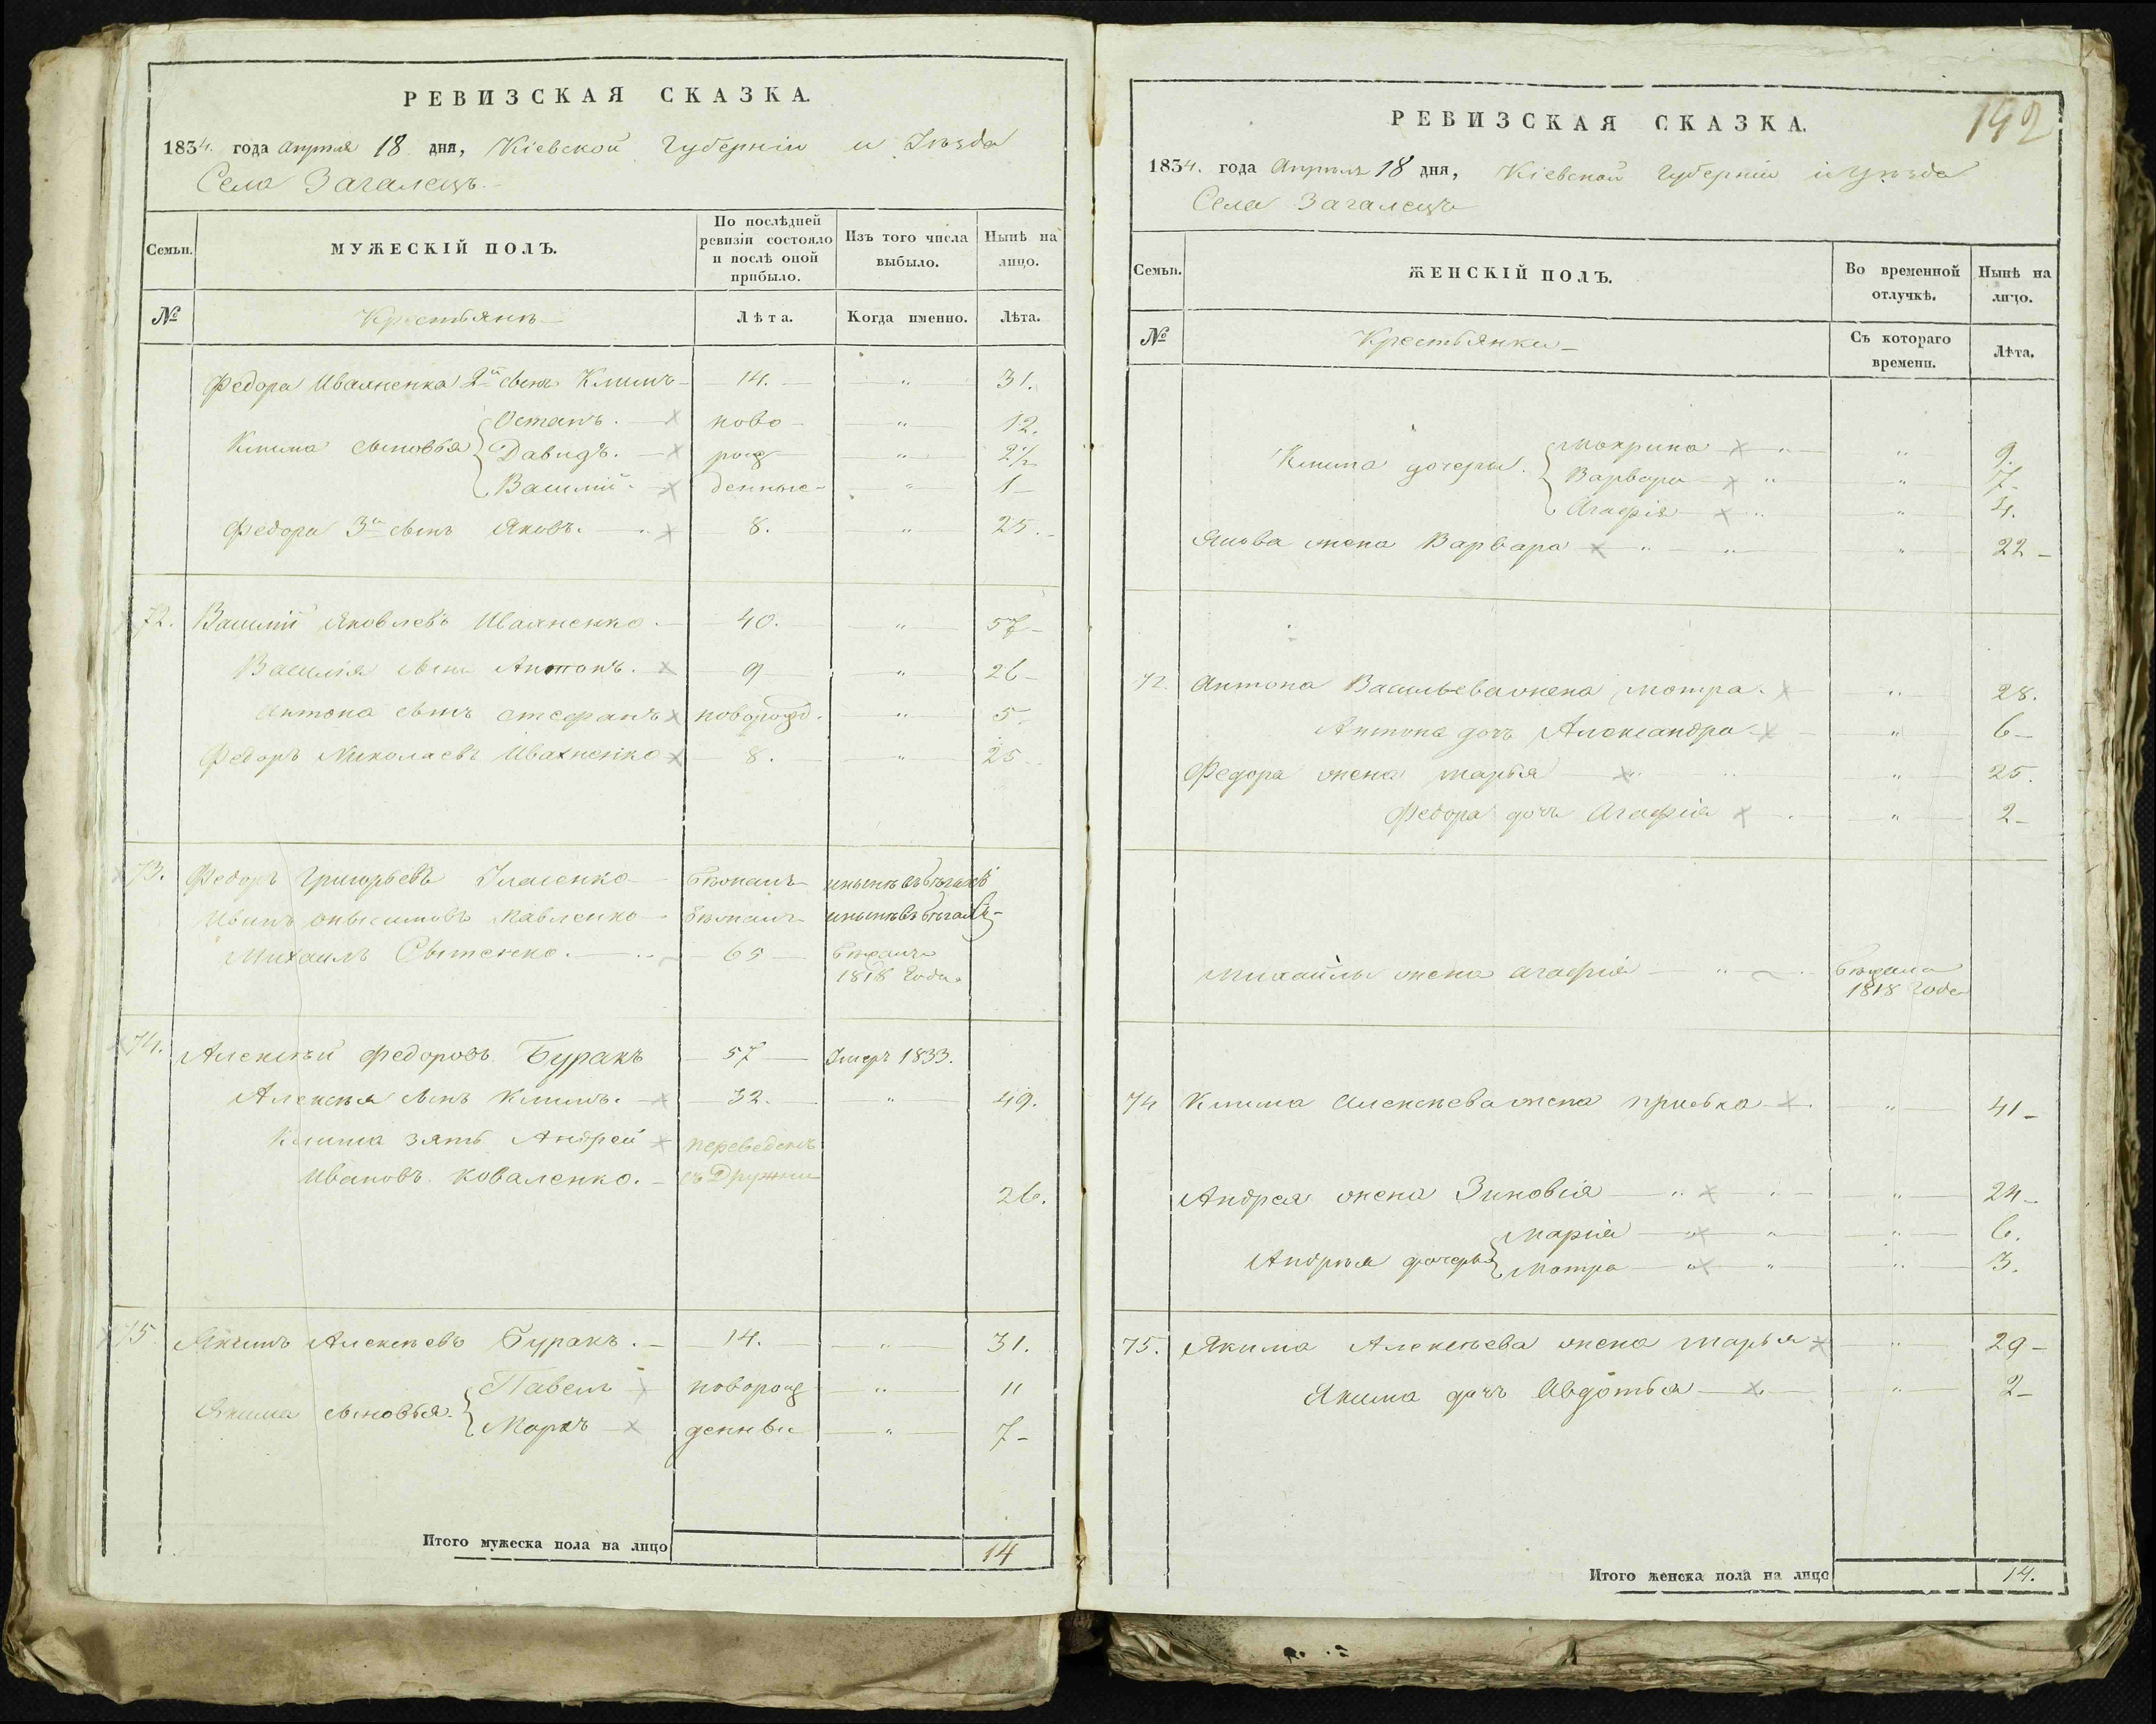 РЕВИЗСКАЯ СКАЗКА.
1834. года апреля 18 дня, Кіевской Губерніи и Уѣзда
Села Загалецъ.
Семьи.
МУЖЕСКІЙ ПОЛЪ.
По послѣдней ревизіи состояло и послѣ оной прибыло.
Изъ того числа выбыло.
Нынѣ на лицо.
№
Крестьянъ
Лѣта.
Когда именно.
Лѣта.
Федора Ивахненка 2й сынъ Климъ 14. " 31.
Клима сыновья Остапъ. ново " 12.
Давидъ. рож " 2½
Василій. денные " 1
Федора 3й сынъ Яковъ. 8. " 25.
72. Василій Яковлевъ Ивахненко. 40. " 57
Василія сынъ Антонъ. 9 " 26
Антона сынъ Стефанъ новорожд. " 5.
Федоръ Николаевъ Ивахненко 8. " 25.
73. Федоръ Григорьевъ
Иванъ Павленко
Михаилъ Сытенко. 65 Бѣжалъ
1818 Года
74. Алексѣй Федоровъ Буракъ 57 Умеръ 1833.
Алексѣя сынъ Климъ. 32. " 49.
Клима зять Андрей переведенъ
Ивановъ Коваленко. съ Дружни
26.
75. Якимъ Алексѣевъ Буракъ. 14. " 31.
Якима сыновья. Павелъ новорож " 11
Марко денны " 7
Итого мужеска пола на лицо 14
192
РЕВИЗСКАЯ СКАЗКА.
1834. года Апреля 18 дня, Кіевской Губерніи и Уѣзда
Села Загалецъ
Семьи.
ЖЕНСКІЙ ПОЛЪ.
Во временной отлучкѣ.
Нынѣ на лицо.
№
Крестьянки
Съ котораго времени.
Лѣта.
Клима дочери. Мокрина " 9.
Варвара " 7
Агафія " 4.
Якова жена Варвара " 22
72. Антона Васильева жена Мотра. " 28.
Антона дочь Александра " 6
Федора жена Марья " 25.
Федора дочь Агафія " 2
Михайлы жена Агафія Бѣжала
1818 Года
74 Клима Алексѣева жена Приська " 41
Андрея жена Зиновія " 24
Андрѣя дочеры Марія " 6.
Мотра " 3.
75. Якима Алексѣева жена Марья " 29
Якима дочь Авдотья " 2
Итого женска пола на лицо 14.